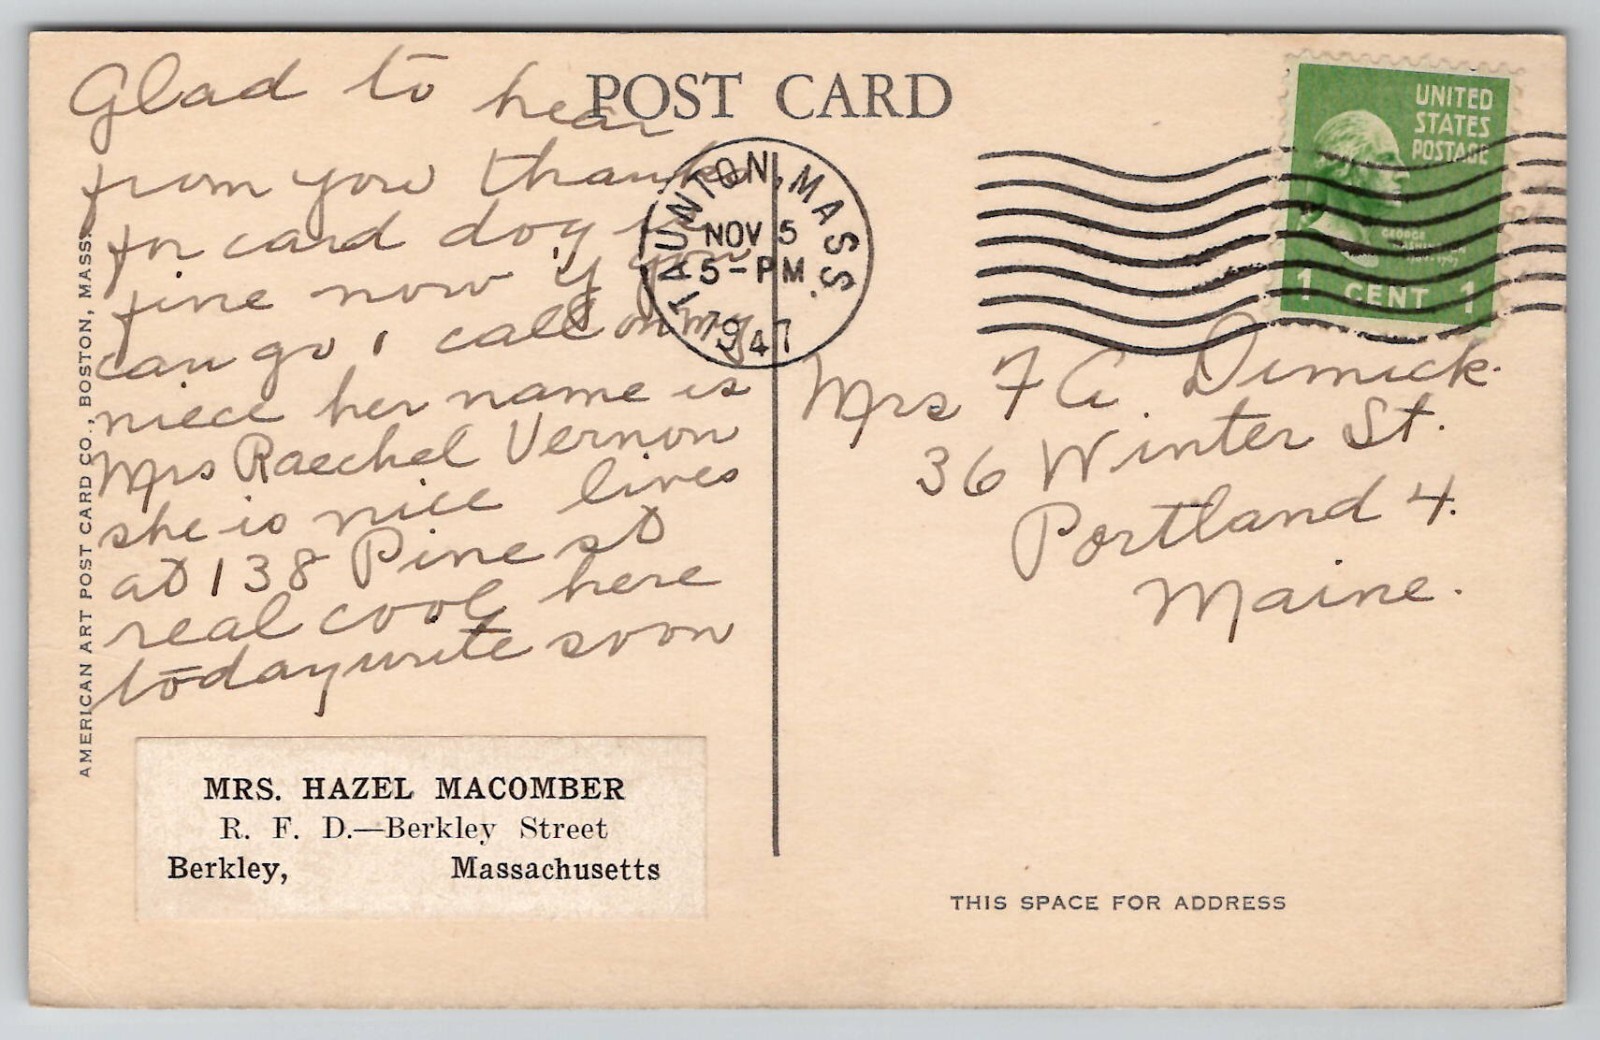 POST CARD
Glad to hear
from you thanks
for card dog is
fine now if you
can go, call on my
niece her name is
Mrs Raechel Vernon
she is nice lives
at 138 Pine st
real cool here
today write soon
TAUNTON, MASS.
NOV 5
5-PM
1947
UNITED
STATES
POSTAGE
GEORGE
WASHINGTON
1 CENT 1
Mrs F A. Dimick.
36 Winter St.
Portland 4.
Maine.
AMERICAN ART POST CARD CO., BOSTON, MASS.
MRS. HAZEL MACOMBER
R. F. D.—Berkley Street
Berkley, Massachusetts
THIS SPACE FOR ADDRESS